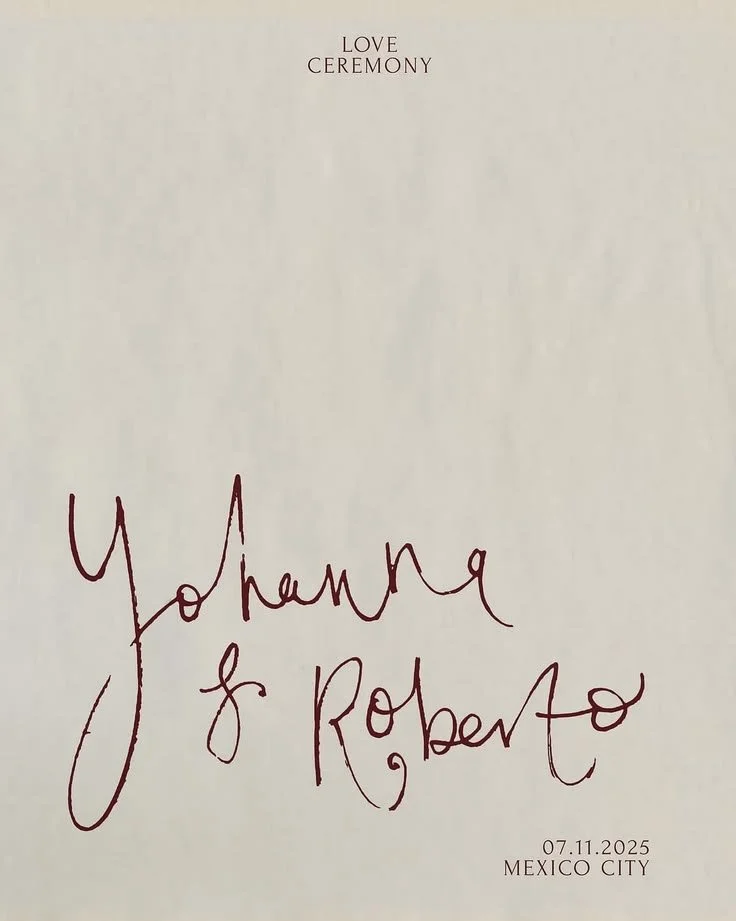 LOVE
CEREMONY
Yohanna
& Roberto
07.11.2025
MEXICO CITY